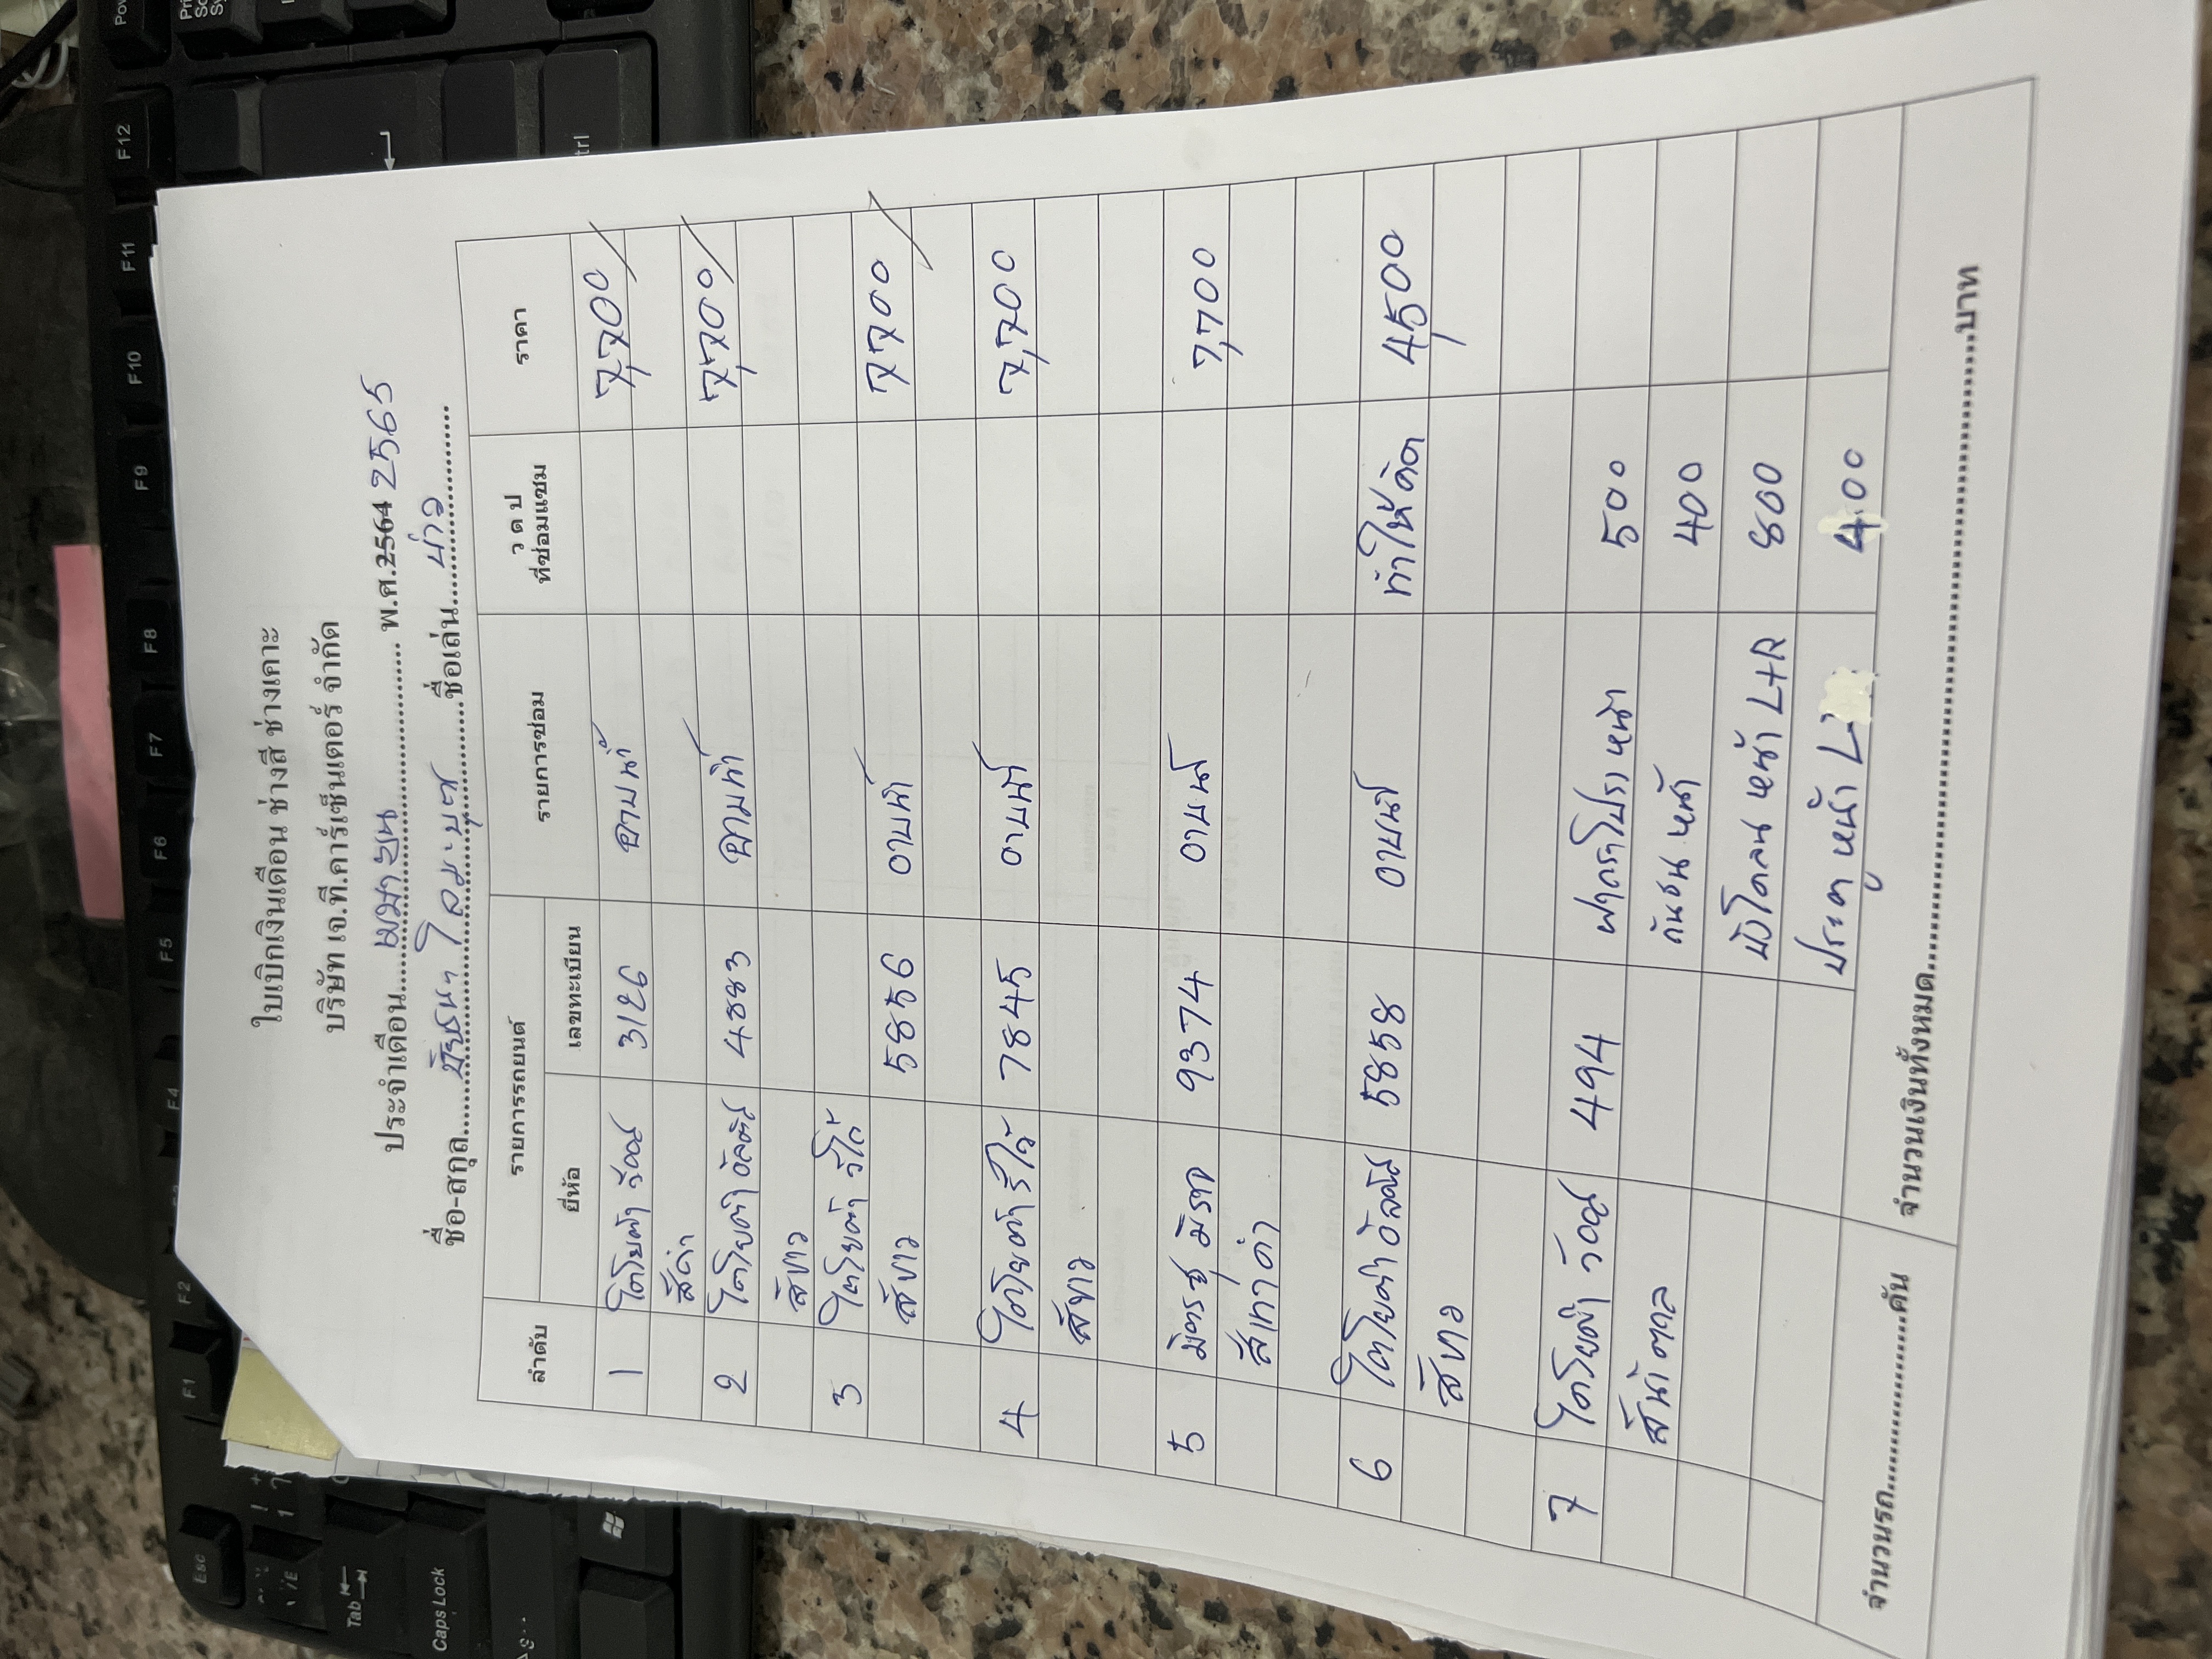 ใบเบิกเงินเดือน ช่างสี ช่างเคาะ
บริษัท เจ.ที.คาร์เซ็นเตอร์ จำกัด
ประจำเดือน เมษายน พ.ศ.2564 2565
ชื่อ-สกุล ชื่อเล่น
ลำดับ รายการรถยนต์ รายการซ่อม ว ด ป ที่ซ่อมแซม ราคา
ยี่ห้อ เลขทะเบียน
1 โตโยต้า วีออส 3126 อาบน้ำ 7,700
สีดำ
2 โตโยต้า อัลติส 4883 อาบน้ำ 7,700
สีขาว
3 โตโยต้า วีโก้ อาบน้ำ 7700
สีขาว 5856
4 โตโยต้า รีโว้ 7845 อาบน้ำ 7,700
สีขาว
5 มิตซูมิราจ 9374 อาบน้ำ 7,700
สีเทาดำ
6 โตโยต้า อัลติส 5858 อาบน้ำ ทำให้คิด 4,500
สีขาว
7 โตโยต้า วีออส 494 ฝากระโปรงหน้า 500
สีน้ำตาล กันชนหน้า 400
บังโคลนหน้า L+R 800
ประตูหน้า L 400
จำนวนรถ คัน จำนวนเงินทั้งหมด บาท